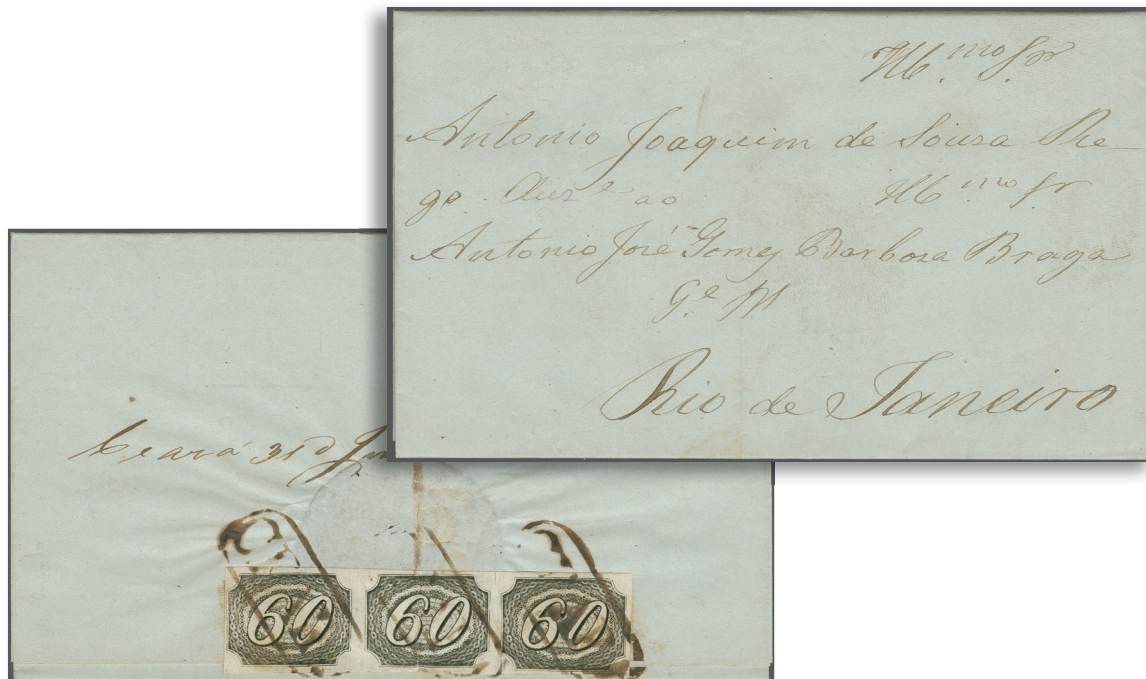 Ill.mo Snr
Antonio Joaquim de Souza Re-
go Auze ao Ill.mo Sr
Antonio José Gomes Barboza Braga
G.e M
Rio de Janeiro
Ceará 31 d
60 60 60